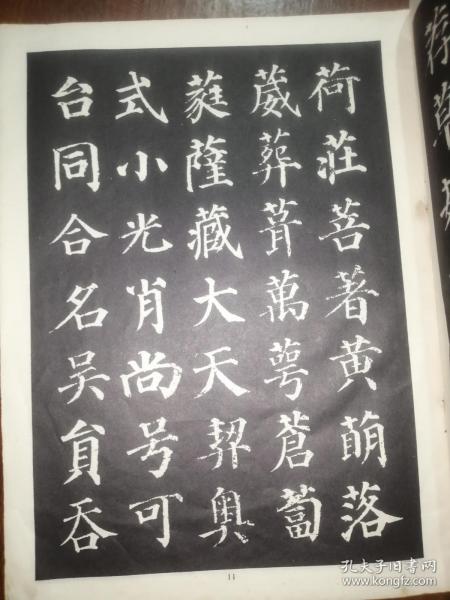 荷莊菩著黄萌落
葳葬葺萬萼蒼蔔
蕤薩藏大天契奥
式小光肖尚号可
台同合名吴員吞
11
孔夫子旧书网
www.kongfz.com